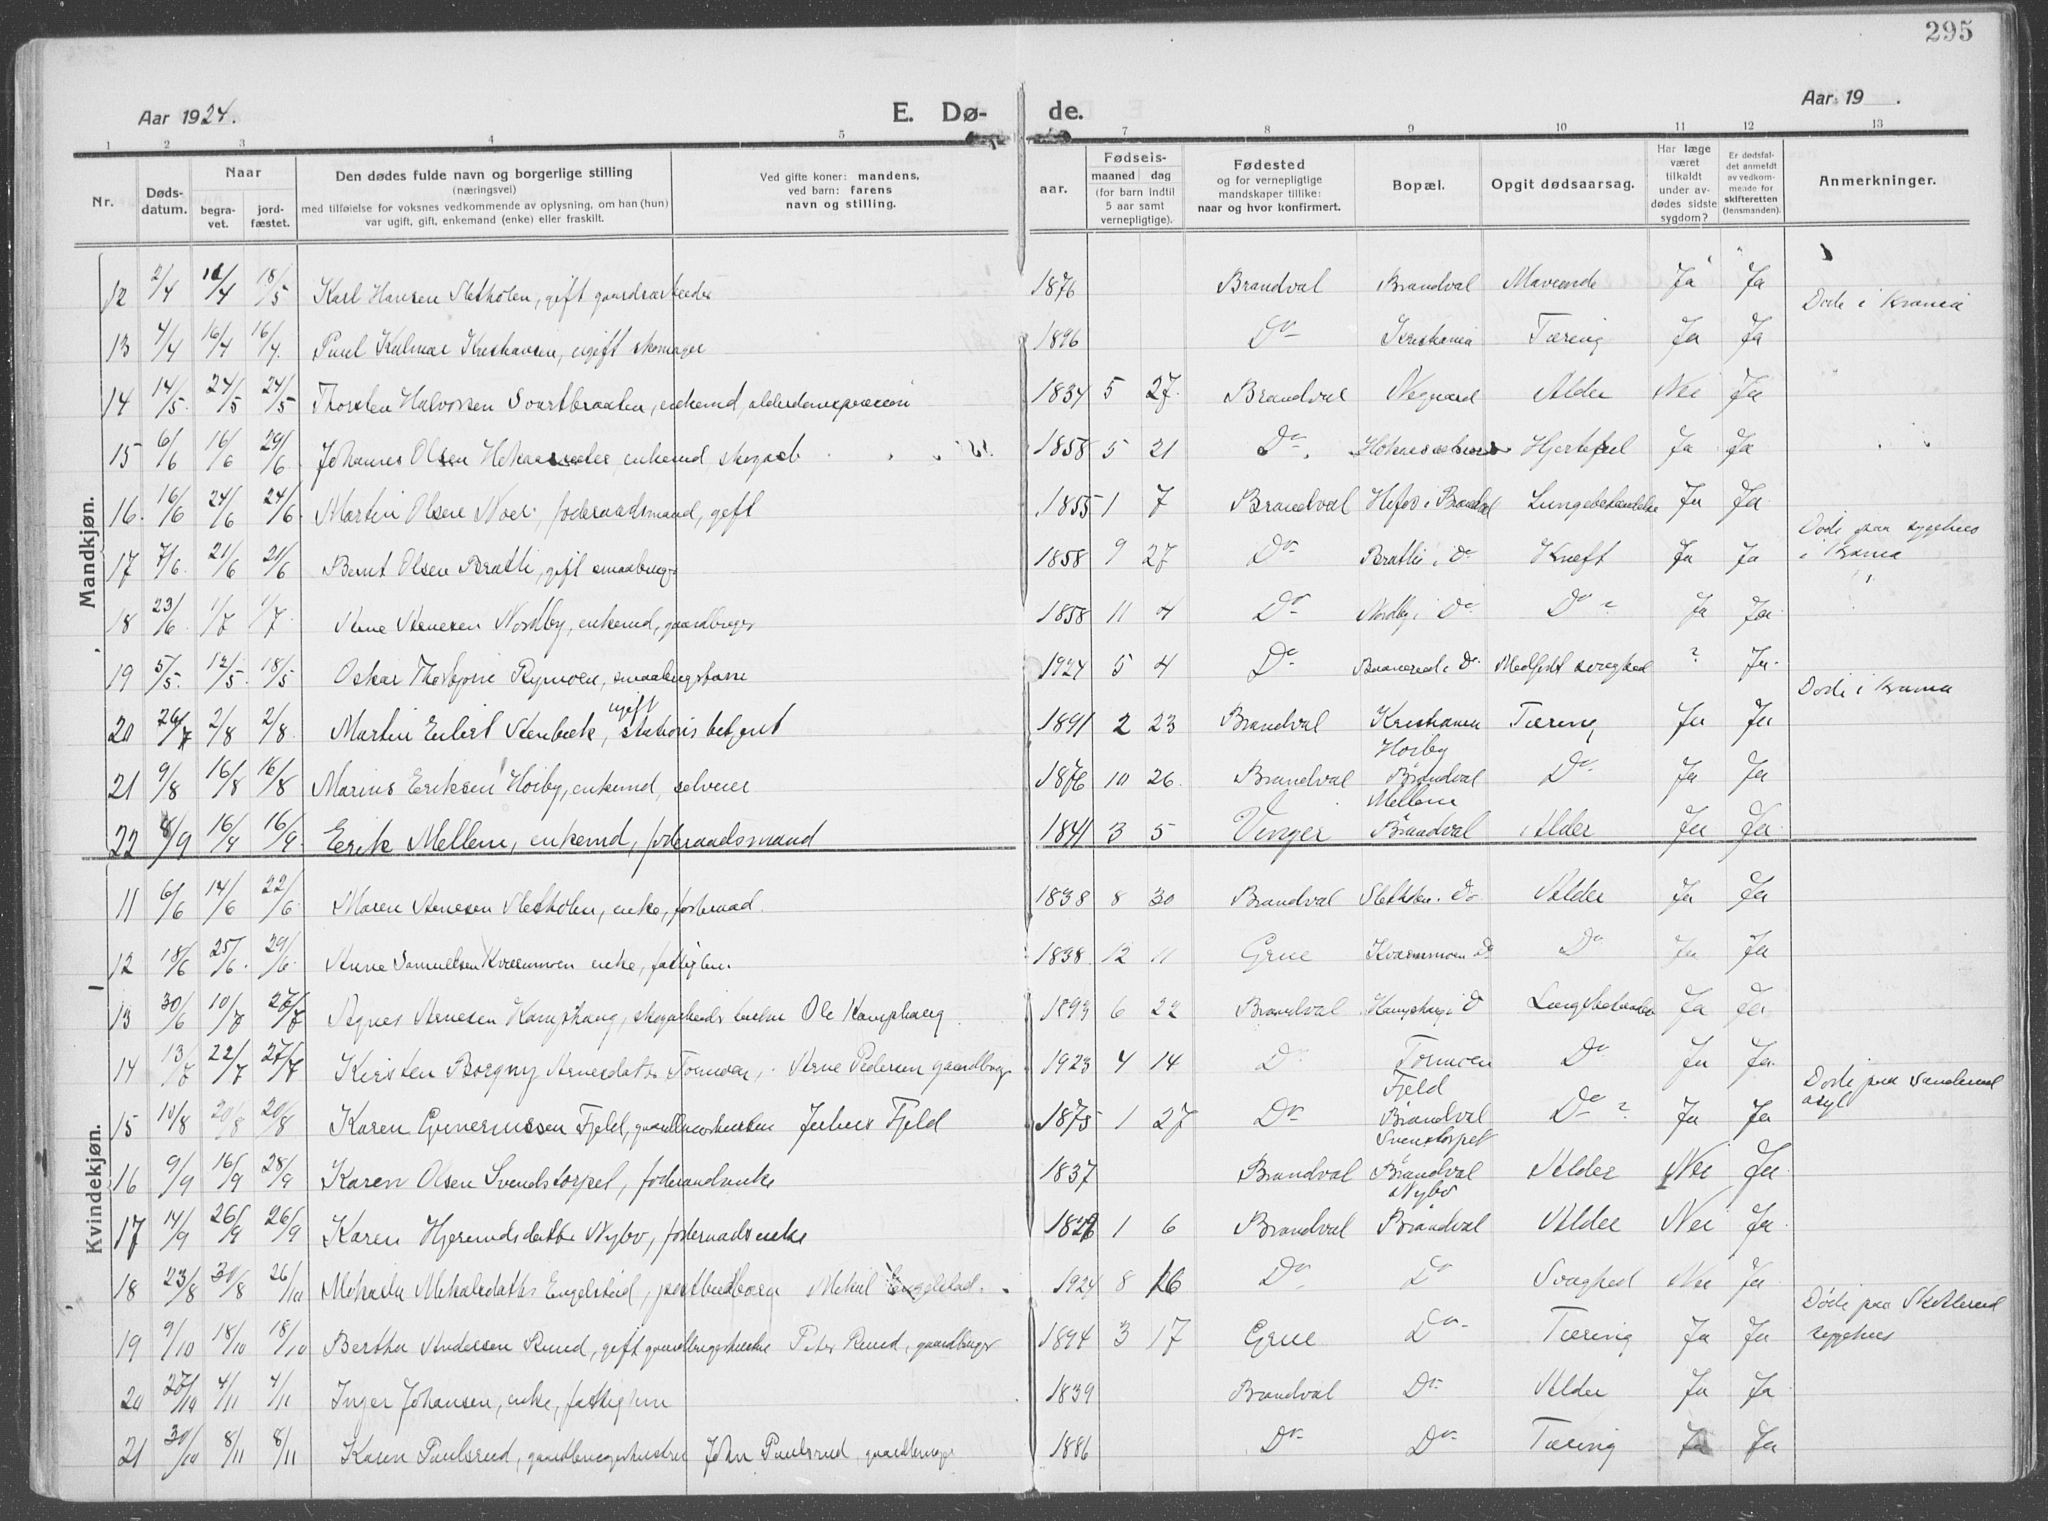 295
Aar 1924.
E. Dø-
de.
Aar 19 .
1 2 3 4 5 7 8 9 10 11 12 13
Nr.
Døds-
datum.
Naar
begra-
vet.
jord-
fæstet.
Den dødes fulde navn og borgerlige stilling
(næringsvei)
med tilføielse for voksnes vedkommende av oplysning, om han (hun)
var ugift, gift, enkemand (enke) eller fraskilt.
Ved gifte koner: mandens,
ved barn: farens
navn og stilling.
aar.
Fødsels-
maaned dag
(for barn indtil
5 aar samt
vernepligtige).
Fødested
og for vernepligtige
mandskaper tillike:
naar og hvor konfirmert.
Bopæl.
Opgit dødsaarsag.
Har læge
været
tilkaldt
under av-
dødes sidste
sygdom?
Er dødsfal-
det anmeldt
av vedkom-
mende for
skifteretten
(lensmanden).
Anmerkninger.
Mandkjøn.
12 2/4 16/4 18/5 Karl Hansen Sletholen, gift gaardsarbeider 1876 Brandval Brandval Mavesaar Ja Ja Døde i Krania
13 4/4 16/4 16/4. Paul Kalmar Kristiansen, ugift skomager 1896 Do Kristiania Tæring Ja Ja
14 14/5. 24/5 24/5 Thorsten Halvorsen Svartbraaten, enkemd, alderdomspension 1834 5 27. Brandval Nygaard Alder Nei Ja
15 6/6 16/6 29/6 Johannes Olsen enkemd skogarb 1858 5 21 Do. Hjertefeil Ja Ja
16. 16/6 24/6 24/6. Martin Olsen Noer, føderaadsmand, gift 1855 1 7 Brandval i Brandval Lungebetændelse Ja Ja
17 7/6. 21/6 21/6 Bernt Olsen Bratli, gift smaabruger 1858 9 27 Do Bratli i Do Kræft Ja Ja Døde paa sygehus
i Krania
18 23/6 1/7 1/7. Arne Arnesen Nordby, enkemd, gaardbruger 1858 11 4 Do Nordby i Do Do ? Ja Ja
19 5/5. 12/5. 18/5 Oskar Thorbjørn Rymoen, smaabrugsbarn 1924 5 4 Do i Do Medfødt svaghed ? Ja. Døde i Krania
20 26/7 2/8 2/8. Martin Enbert Stenbæk, ugift stationsbetjent 1891 2 23 Brandval Kristiania Tæring Ja Ja
21 9/8 16/8 16/8 Marius Eriksen Høiby, enkemd, selveier 1876 10 26. Brandval Høiby Brandval Do Ja Ja
22 8/9 16/9 16/9. Erik Mellem, enkemd, føderaadsmand 1841 3 5 Vinger Mellem Brandval Alder Ja Ja
Kvindekjøn.
11 6/6 14/6 22/6. Maren Arnesen Sletholen, enke, føderaad. 1838 8 30 Brandval Sletholen. Do Alder Ja Ja
12 18/6 25/6. 29/6. Anne Samuelsen Kværnmoen enke, fattiglem. 1838 12 11 Grue Kværnmoen Do Do Ja Ja
13 30/6 10/7 27/7 Agnes Arnesen Kamphaug, skogarbeids hustru Ole Kamphaug 1893 6 22 Brandval Kamphaug i D Lungebetændelse Ja Ja
14 13/7 22/7 27/7 Kirsten Borgny Arnesdatter Tormoen, Arne Pedersen gaardbruger 1923 4 14 Do Tormoen Do Ja Ja.
15 10/8 20/8 20/8 Karen Gunerussen Fjeld, gaardbrugerhustru Julius Fjeld 1875 1 27 Do Fjeld Brandval Do ? Ja Ja Døde paa Sanderud
asyl
16 9/9 16/9 28/9 Karen Olsen Svendstorpet, føderaadsenke 1837 Brandval Svenstorpet Brandval Alder Nei Ja
17 14/9 26/9 26/9 Karen Nybo, føderaadsenke 1 6 Brandval Nybo Brandval Alder Nei Ja.
18 23/8 30/8 26/10 Engelstad, postbudbarn Mikal Engelstad. 1924 8 16 Do Do Svaghed Nei Ja
19 9/10 18/10 18/10 Berthe Andersen Rund, gift gaardbrugerhustru Peter Rund, gaardbruger 1894 3 17 Grue Do Tæring Ja Ja Døde paa
sygehus
20 27/10 4/11 4/11 Inger Johansen, enke, fattiglem 1839 Brandval Do Alder Ja Ja
21 30/10 8/11 8/11 Karen Paulsrud, gaardbrugerhustru John Paulsrud, gaardbruger 1886 Do Do Tæring Ja Ja